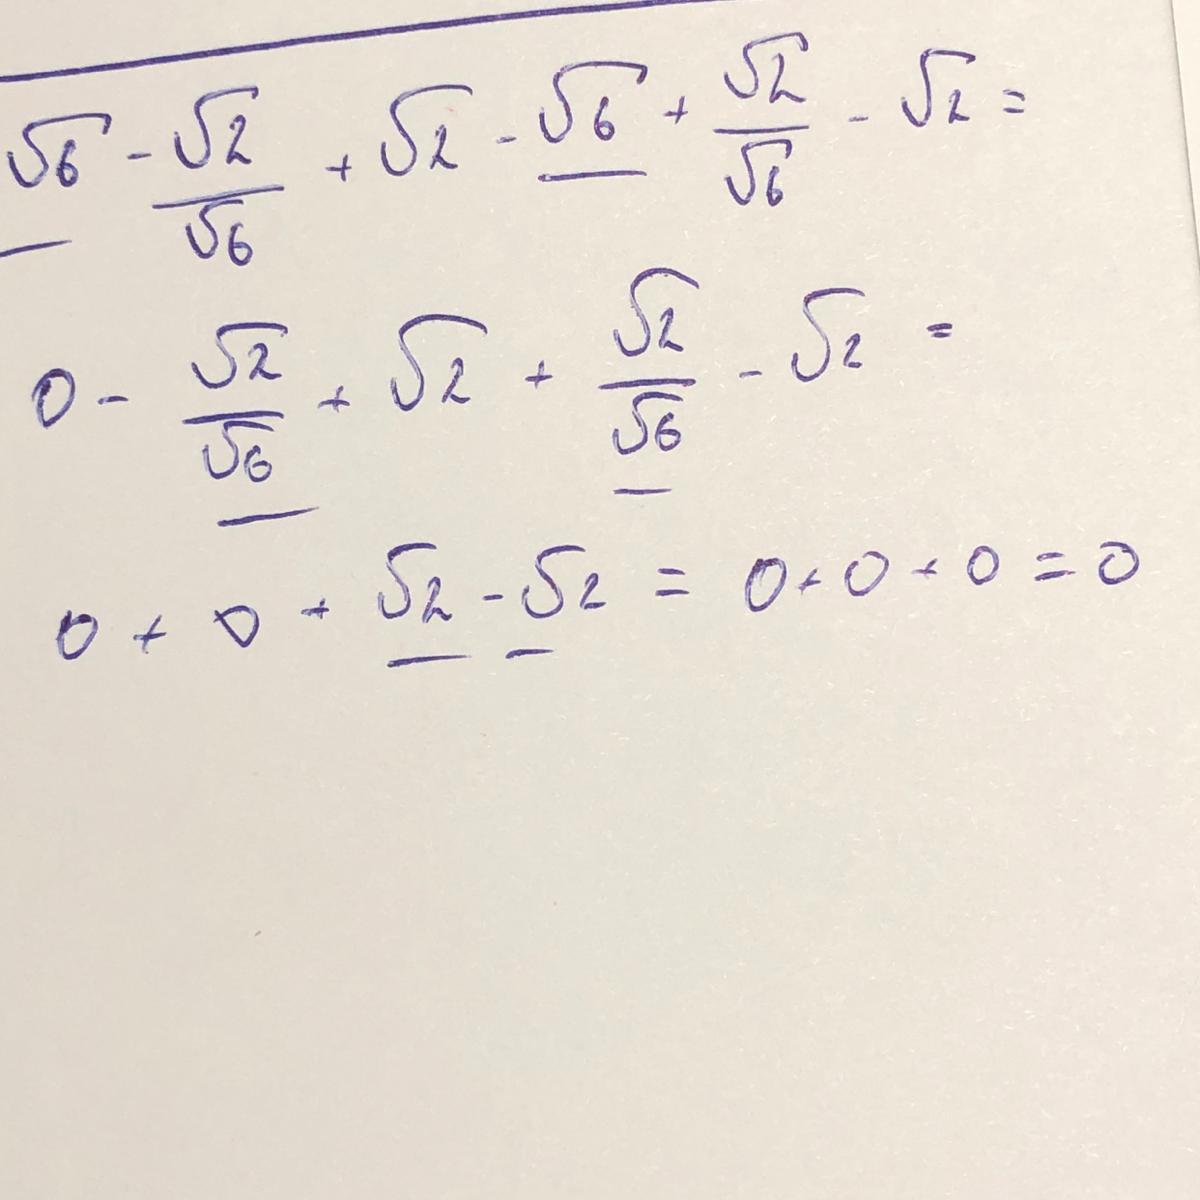 √6 - √2/√6 + √2 - √6 + √2/√6 - √2 =
0 - √2/√6 + √2 + √2/√6 - √2 =
0 + 0 + √2 - √2 = 0 + 0 + 0 = 0